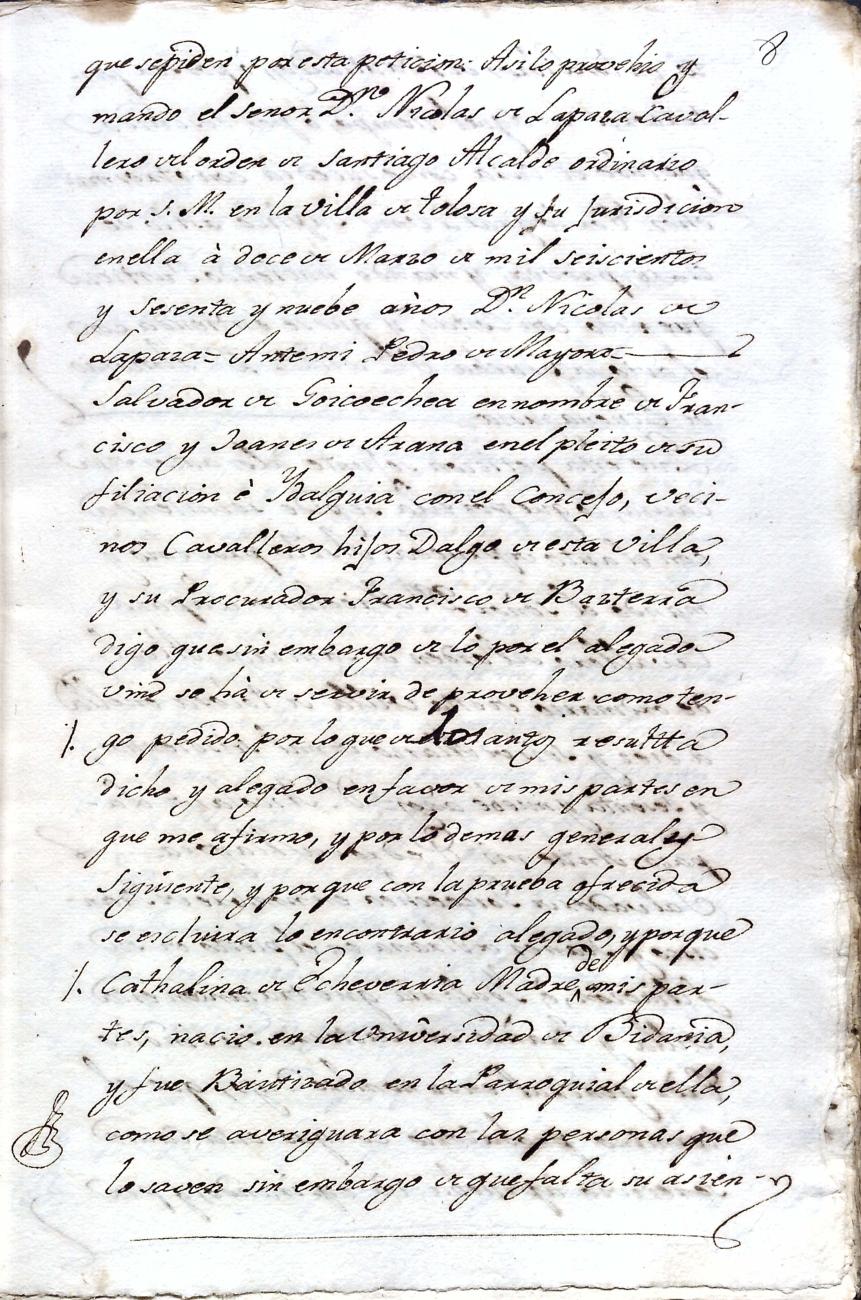 8
que se piden por esta peticion: Asilo provehio y
mando el señor D.n Nicolas de Lapaza Caval-
lero del orden de Santiago Alcalde ordinario
por S. M. en la villa de Tolosa y su Jurisdicion
en ella à doce de Marzo de mil seiscientos
y sesenta y nuebe años D.n Nicolas de
Lapaza = Antemi Pedro de Mayora =
Salvador de Goicoechea en nombre de Fran-
cisco y Joanes de Arana en el pleito de su
filiacion è Ydalguia con el Concejo, veci-
nos Cavalleros hijos Dalgo de esta villa,
y su Procurador Francisco de Bazterra
digo que sin embargo de lo por el alegado
vmd se hà de servir de proveher como ten-
/. go pedido por lo que de los autos resultta
dicho y alegado en favor de mis partes en
que me afirmo, y por lo demas general y
siguiente, y por que con la prueba ofrecida
se escluirra lo encontrario alegado, y porque
/. Cathalina de Echeverria Madre de mis par-
tes, nacio en la Universidad de Bidania,
y fue Bautizado en la Parroquial de ella,
como se averiguara con las personas que
lo saven sin embargo de que falta su asien-